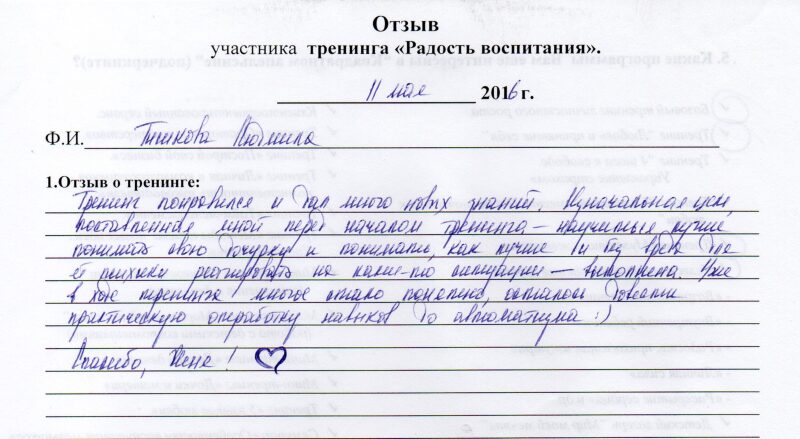 Отзыв
участника тренинга «Радость воспитания».
11 мая 2016 г.
Ф.И. Людмила
1.Отзыв о тренинге:
Тренинг понравился и дал много новых знаний. Изначальная цель,
поставленная мной перед началом тренинга – научиться лучше
понимать свою дочурку и понимать, как лучше и без вреда для
её психики реагировать на какие-то ситуации – выполнена. Уже
в ходе тренинга многое стало понятно, осталось довести
практическую отработку навыков до автоматизма :)
Спасибо, Женя!